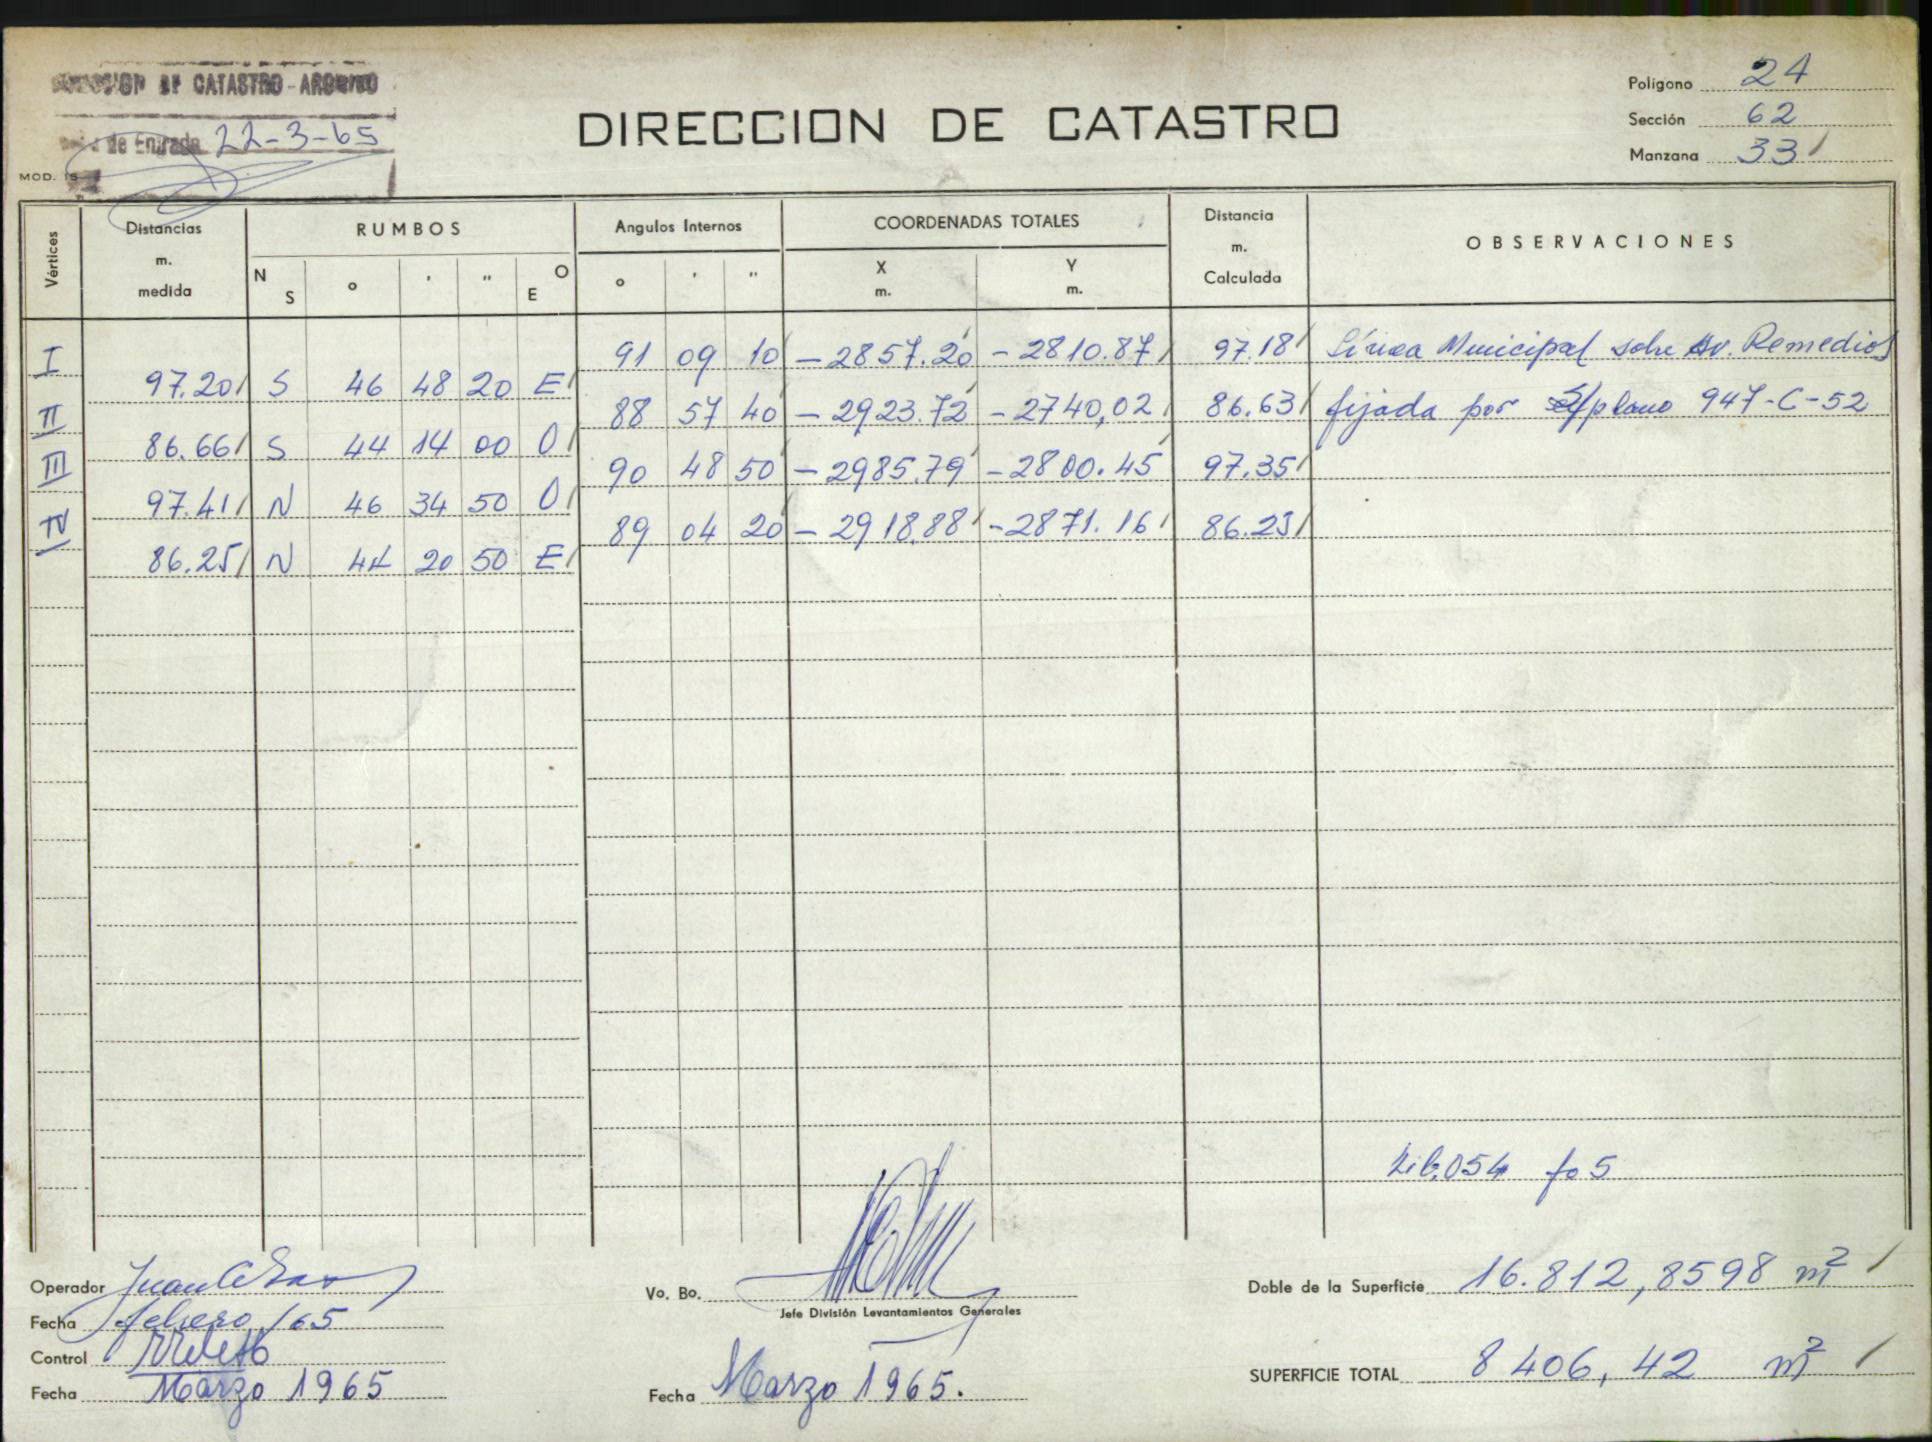 DIVISION DE CATASTRO - ARCHIVO
de Entrada 22-3-65
MOD. 15
DIRECCION DE CATASTRO
Polígono 24
Sección 62
Manzana 33
Vértices Distancias m. medida RUMBOS N S o ' " E O Angulos Internos o ' " COORDENADAS TOTALES X m. Y m. Distancia m. Calculada OBSERVACIONES
I 91 09 10 -2857.20 -2810.87 97.18 Línea Municipal sobre Av. Remedios
97.20 S 46 48 20 E
II 88 57 40 -2923.72 -2740,02 86.63 fijada por s/plano 947-C-52
86.66 S 44 14 00 O
III 90 48 50 -2985.79 -2800.45 97.35
97.41 N 46 34 50 O
IV 89 04 20 -2918.88 -2871.16 86.23
86.25 N 44 20 50 E
Lib.054 fo 5
Operador Juan
Fecha febrero/65
Control
Fecha Marzo 1965
Vo. Bo.
Jefe División Levantamientos Generales
Fecha Marzo 1965.
Doble de la Superficie 16.812,8598 m²
SUPERFICIE TOTAL 8406,42 m²